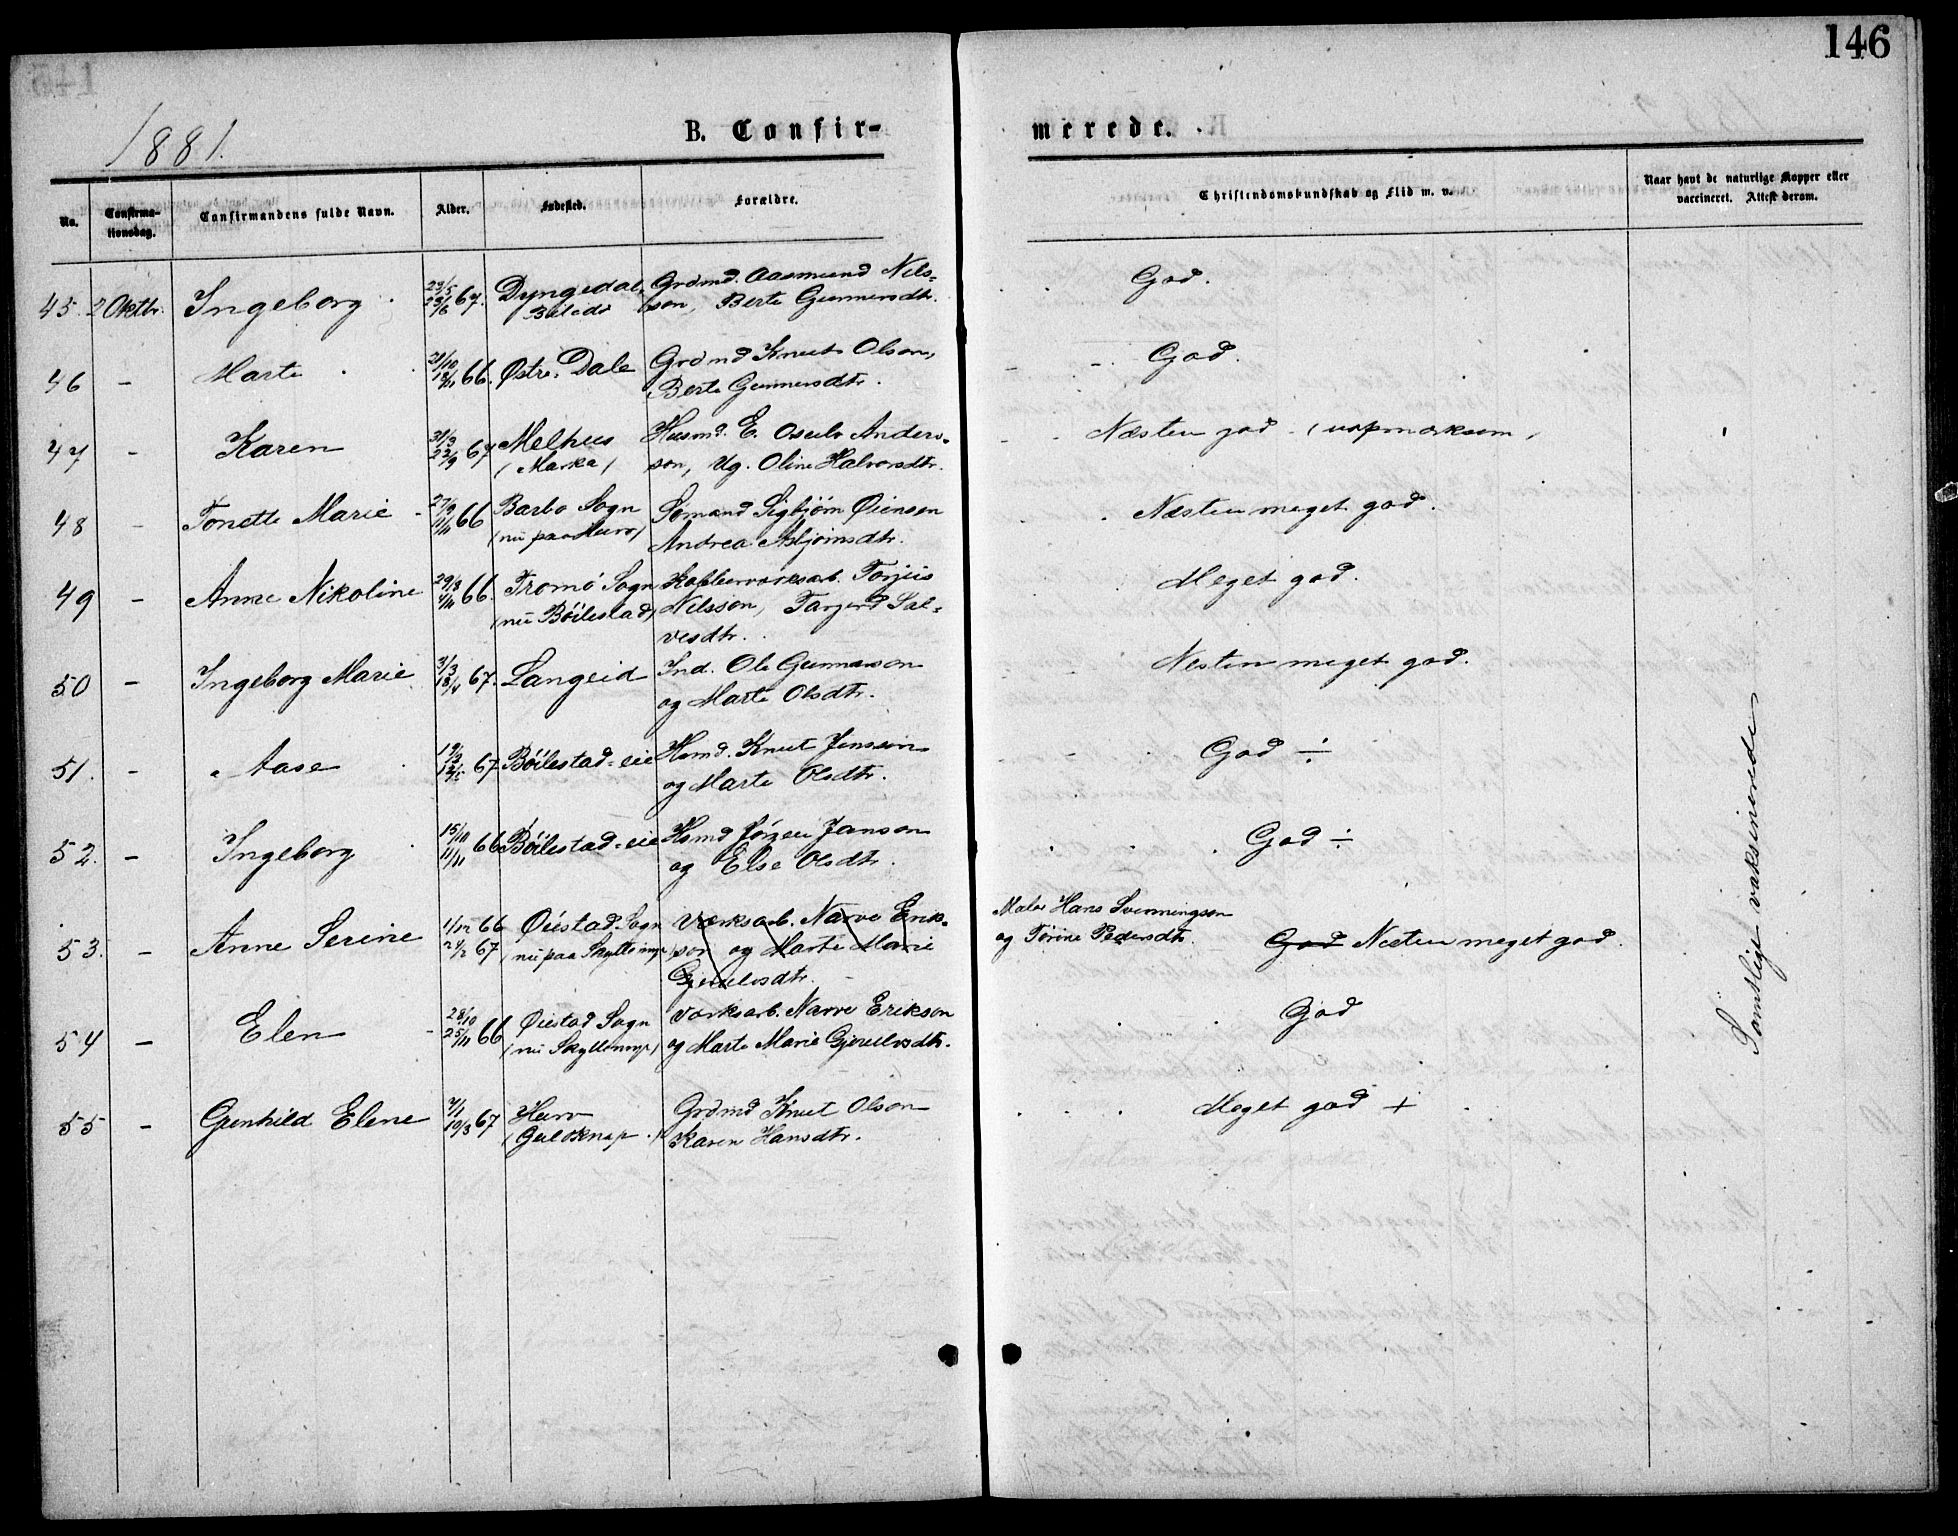 146
1881.
B. Confir-
merede.
No.
Confirma-
tionsdag.
Confirmandens fulde Navn.
Alder.
Fødested.
Forældre.
Christendomskundskab og Flid m. v.
Naar havt de naturlige Kopper eller
vaccineret. Attest derom.
45. 2 Oktbr. Ingeborg 23/5 67. Dyngedal, Grdmd. Aasmund Nils-
23/6 son, Berte Gunnersdtr. God.
46 - Marte 21/10 66. Østre Dale Grdmd Knut Olson,
18/11 Berte Gunnersdtr. God.
47 - Karen 31/3 67 Melhus Husmd. E. Osulv Anders-
(Marka) son, Ug. Oline Halvorsdtr. Næsten god - (uopmærksom)
48 - Tonette Marie 27/9 66 Barbo Sogn Sømand Sigbjørn Øiensen
11/11 (nu paa Hurv) Andrea Asbjørnsdtr. Næsten meget god.
49 - Anne Nikoline 29/8 66. Tromø Sogn Torjus
(nu Böilestad) Nilsson, Torjerd Sal-
vesdtr. Meget god.
50 - Ingeborg Marie 3/3 67. Langeid Ind. Ole Gunnarson
18/4 og Marte Olsdtr. Næsten meget god.
51. - Aase 19/3 67 Böilestad-eie Hsmd. Knut Jensen
og Marte Olsdtr. God ÷
52. - Ingeborg 15/10 66 Böilestad-eie Hsmd Jörgen Janson
11/11 og Else Olsdtr. God ÷
53. - Anne Serine 1/12 66 Øiestad Sogn Værksarb. Narve Erik-
24/2 67 (nu paa Skyttemyr) son og Marte Marie
Gjeruldsdtr. Maler Hans Svenningson
og Törine Pedersdtr. God Næsten meget god.
54 - Elen 28/10 66 Øiestad Sogn Værksarb. Narve Erikson
25/11 (nu Skyttemyr) og Marte Marie Gjeruldsdtr. God
55 - Gunhild Elene 7/1 67 Hurv Grdmd Knut Olson
10/3 (Guldknap.) Karen Hansdtr. Meget god +
Samtlige vaksinerede